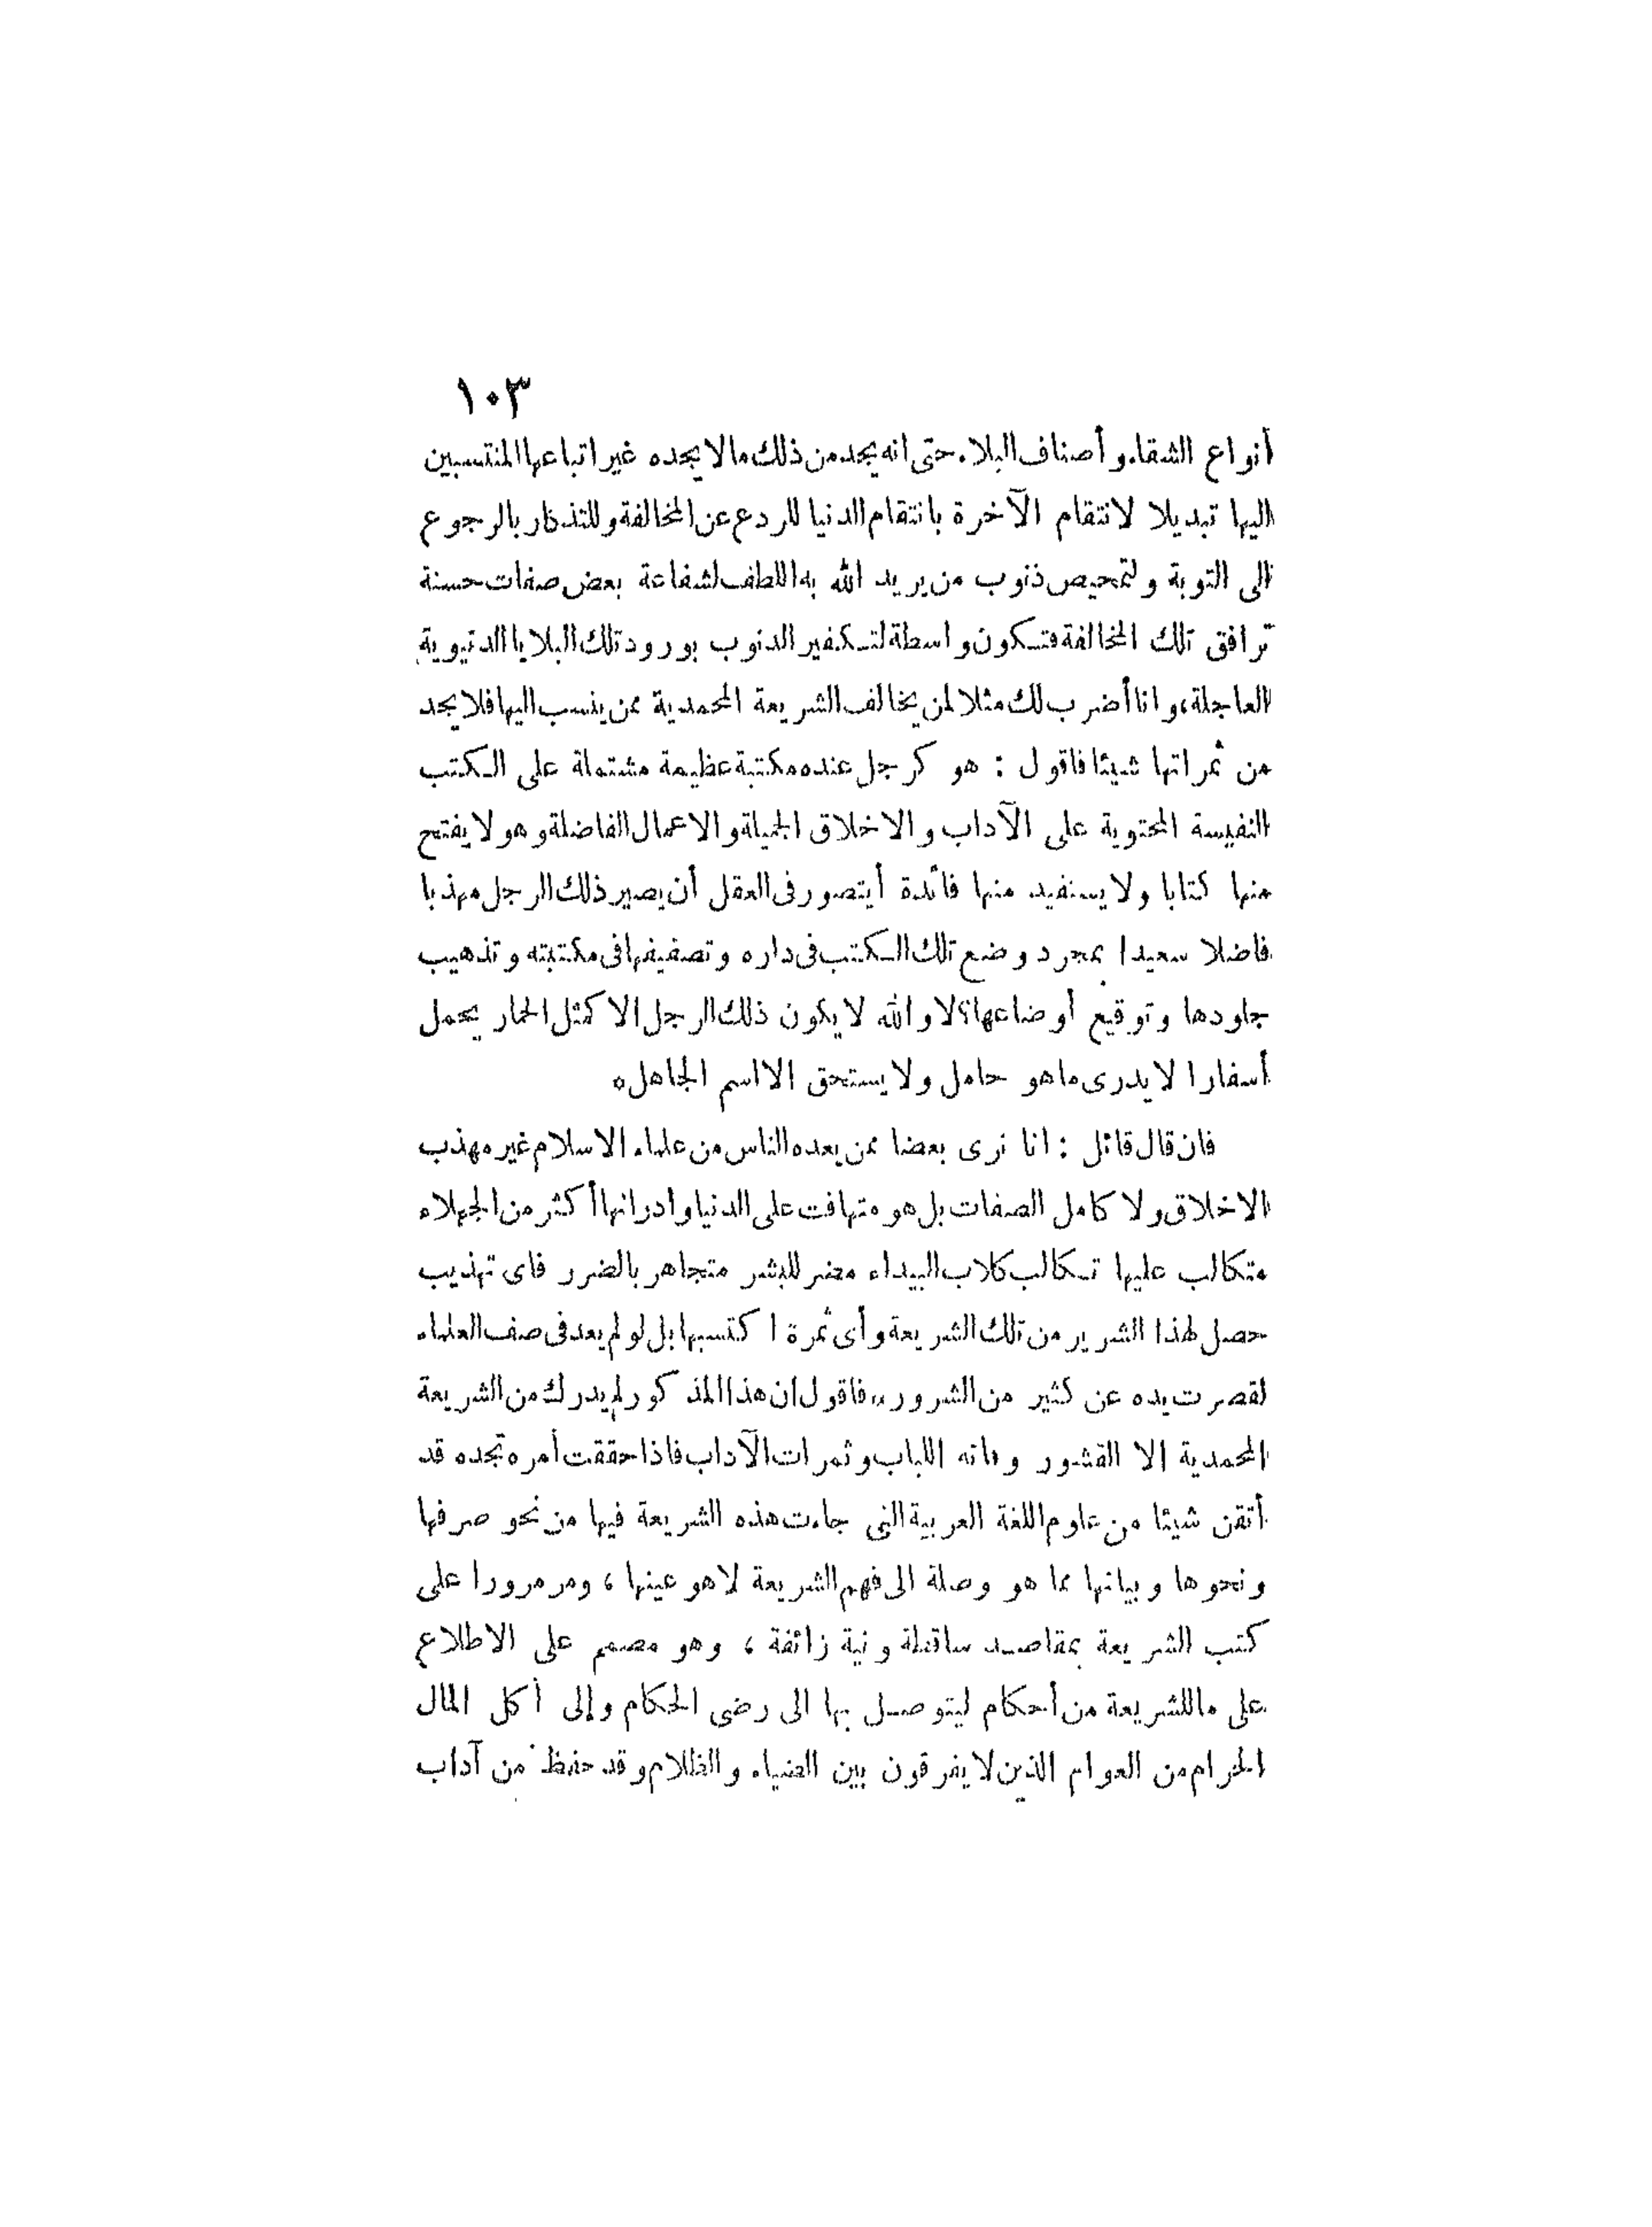 ١٠٣
أنواع الشقاء وأصناف البلاء حتى انه يجد من ذلك مالا يجده غير اتباعها المنتسبين
اليها تبديلا لانتقام الآخرة بانتقام الدنيا للردع عن المخالفة وللتذكار بالرجوع
الى التوبة ولتمحيص ذنوب من يريد الله به اللطف لشفاعة بعض صفات حسنة
ترافق تلك المخالفة فتكون واسطة لتكفير الذنوب بورود تلك البلايا الدنيوية
العاجلة، وانا أضرب لك مثلا لمن يخالف الشريعة المحمدية ممن ينسب اليها فلا يجد
من ثمراتها شيئا فاقول : هو كرجل عنده مكتبة عظيمة مشتملة على الكتب
النفيسة المحتوية على الآداب والاخلاق الجميلة والاعمال الفاضلة وهو لا يفتح
منها كتابا ولا يستفيد منها فائدة أيتصور فى العقل أن يصير ذلك الرجل مهذبا
فاضلا سعيدا بمجرد وضع تلك الكتب فى داره وتصفيفها فى مكتبته وتذهيب
جلودها وتوقيع أوضاعها؟ لا والله لا يكون ذلك الرجل الا كمثل الحمار يحمل
أسفارا لا يدرى ماهو حامل ولا يستحق الا اسم الجاهل.
فان قال قائل : انا نرى بعضا ممن يعده الناس من علماء الاسلام غير مهذب
الاخلاق ولا كامل الصفات بل هو متهافت على الدنيا وأدرانها أكثر من الجهلاء
متكالب عليها تكالب كلاب البيداء مضر للبشر متجاهر بالضرر فاى تهذيب
حصل لهذا الشرير من تلك الشريعة وأى ثمرة اكتسبها بل لو لم يعد فى صف العلماء
لقصرت يده عن كثير من الشرور،، فاقول ان هذا المذكور لم يدرك من الشريعة
المحمدية الا القشور وفاته اللباب وثمرات الآداب فاذا حققت أمره تجده قد
أتقن شيئا من علوم اللغة العربية التى جاءت هذه الشريعة فيها من نحو صرفها
ونحوها وبيانها مما هو وصلة الى فهم الشريعة لا هو عينها ، ومر مرورا على
كتب الشريعة بمقاصد ساقطة ونية زائفة ، وهو مصمم على الاطلاع
على ماللشريعة من أحكام ليتوصل بها الى رضى الحكام وإلى أكل المال
الحرام من العوام الذين لا يفرقون بين الضياء والظلام وقد حفظ من آداب